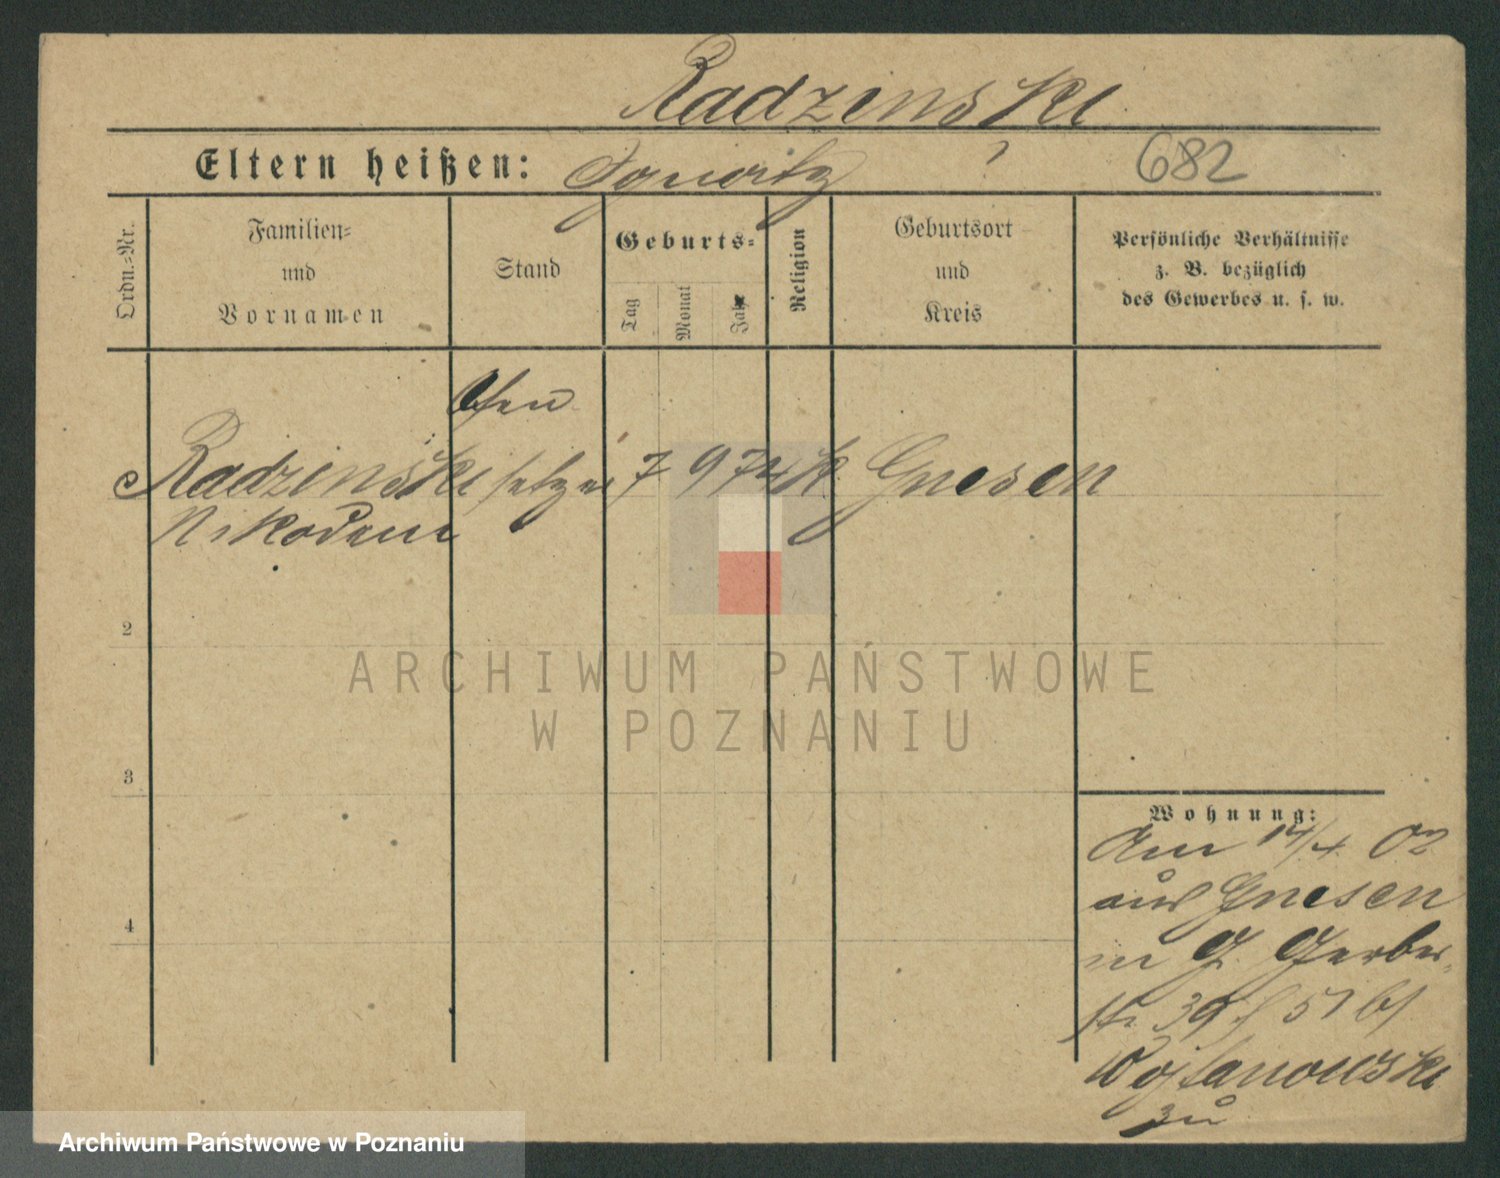 Radzinski
Eltern heißen: Ignatz ? 682
Ordn.-Nr.
Familien-
und
Vornamen
Stand
Geburts-
Tag
Monat
Jahr
Religion
Geburtsort
und
Kreis
Persönliche Verhältnisse
z. B. bezüglich
des Gewerbes u. s. w.
Ofen
Radzinski setzer 7 9 74 k. Gnesen
Nikodem
2
3
4
Wohnung:
Am 14/4 02
aus Gnesen
in G. Gerber-
str. 39 51 bei
zu
ARCHIWUM PAŃSTWOWE
W POZNANIU
Archiwum Państwowe w Poznaniu